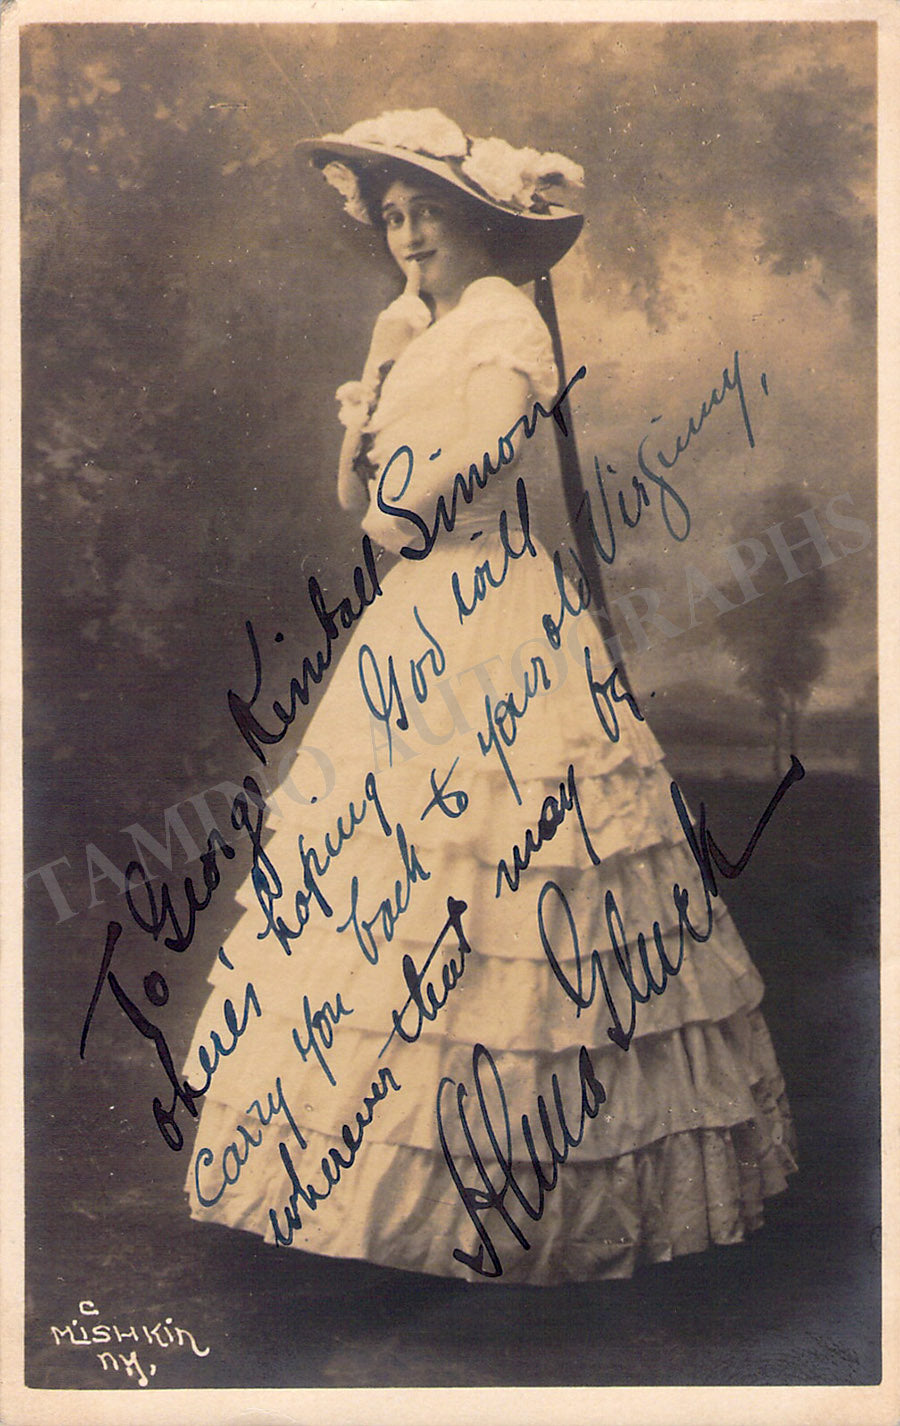 To George Kimball Simon
heres' hoping God will
carry you back to your old Virginny,
wherever that may be.
Alma Gluck
TAMINO AUTOGRAPHS
C
MiSHKiN
NY,